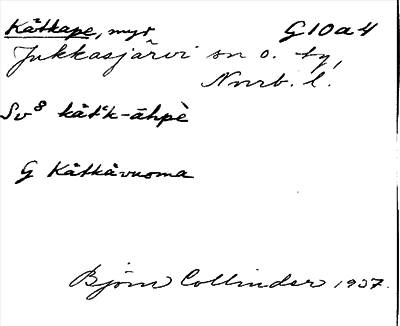 Kätkape, myr G10a4
Jukkasjärvi sn o. tg,
Norrb. l.
Sv⁸ kät'k-āhpè
G Kätkävuoma
Björn Collinder 1937.